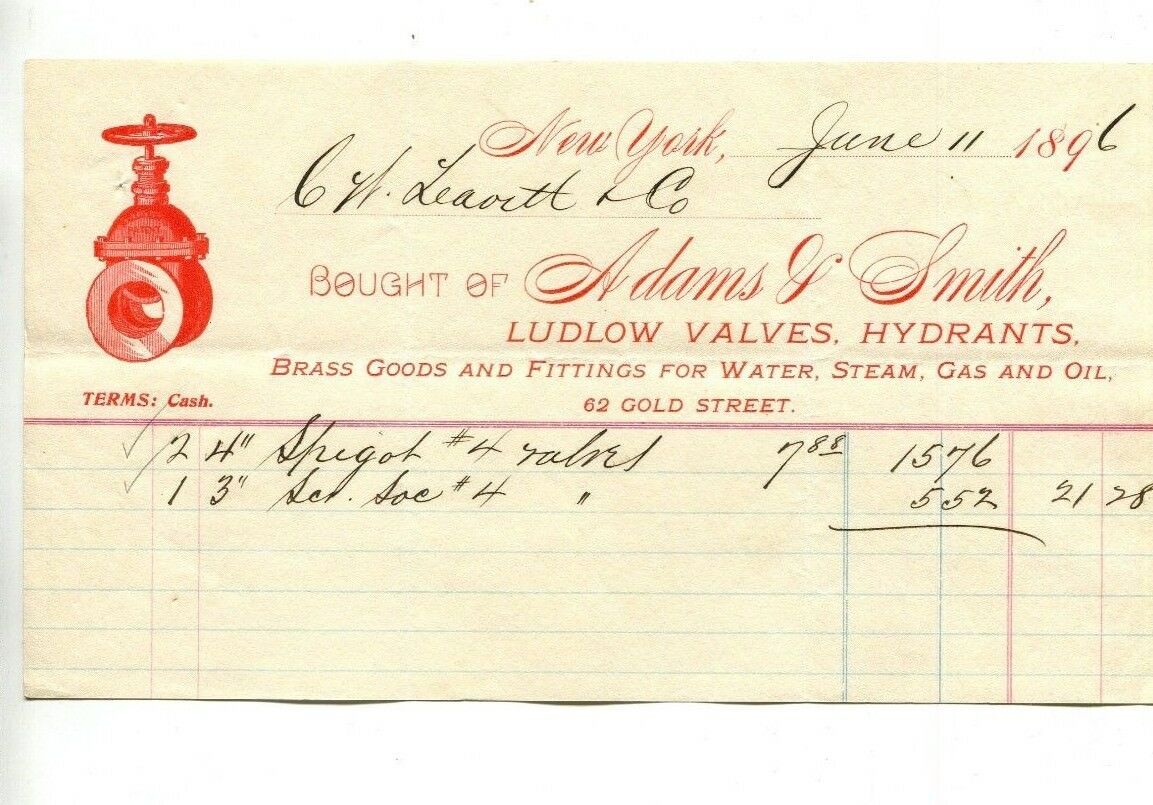 New York, June 11 1896
C W. Leavitt & Co
BOUGHT OF Adams & Smith,
LUDLOW VALVES, HYDRANTS,
BRASS GOODS AND FITTINGS FOR WATER, STEAM, GAS AND OIL,
TERMS: Cash.
62 GOLD STREET.
2 4" Spigot #4 valves 7 88 15 76
1 3" Scr. Soc #4 " 5 52 21 28